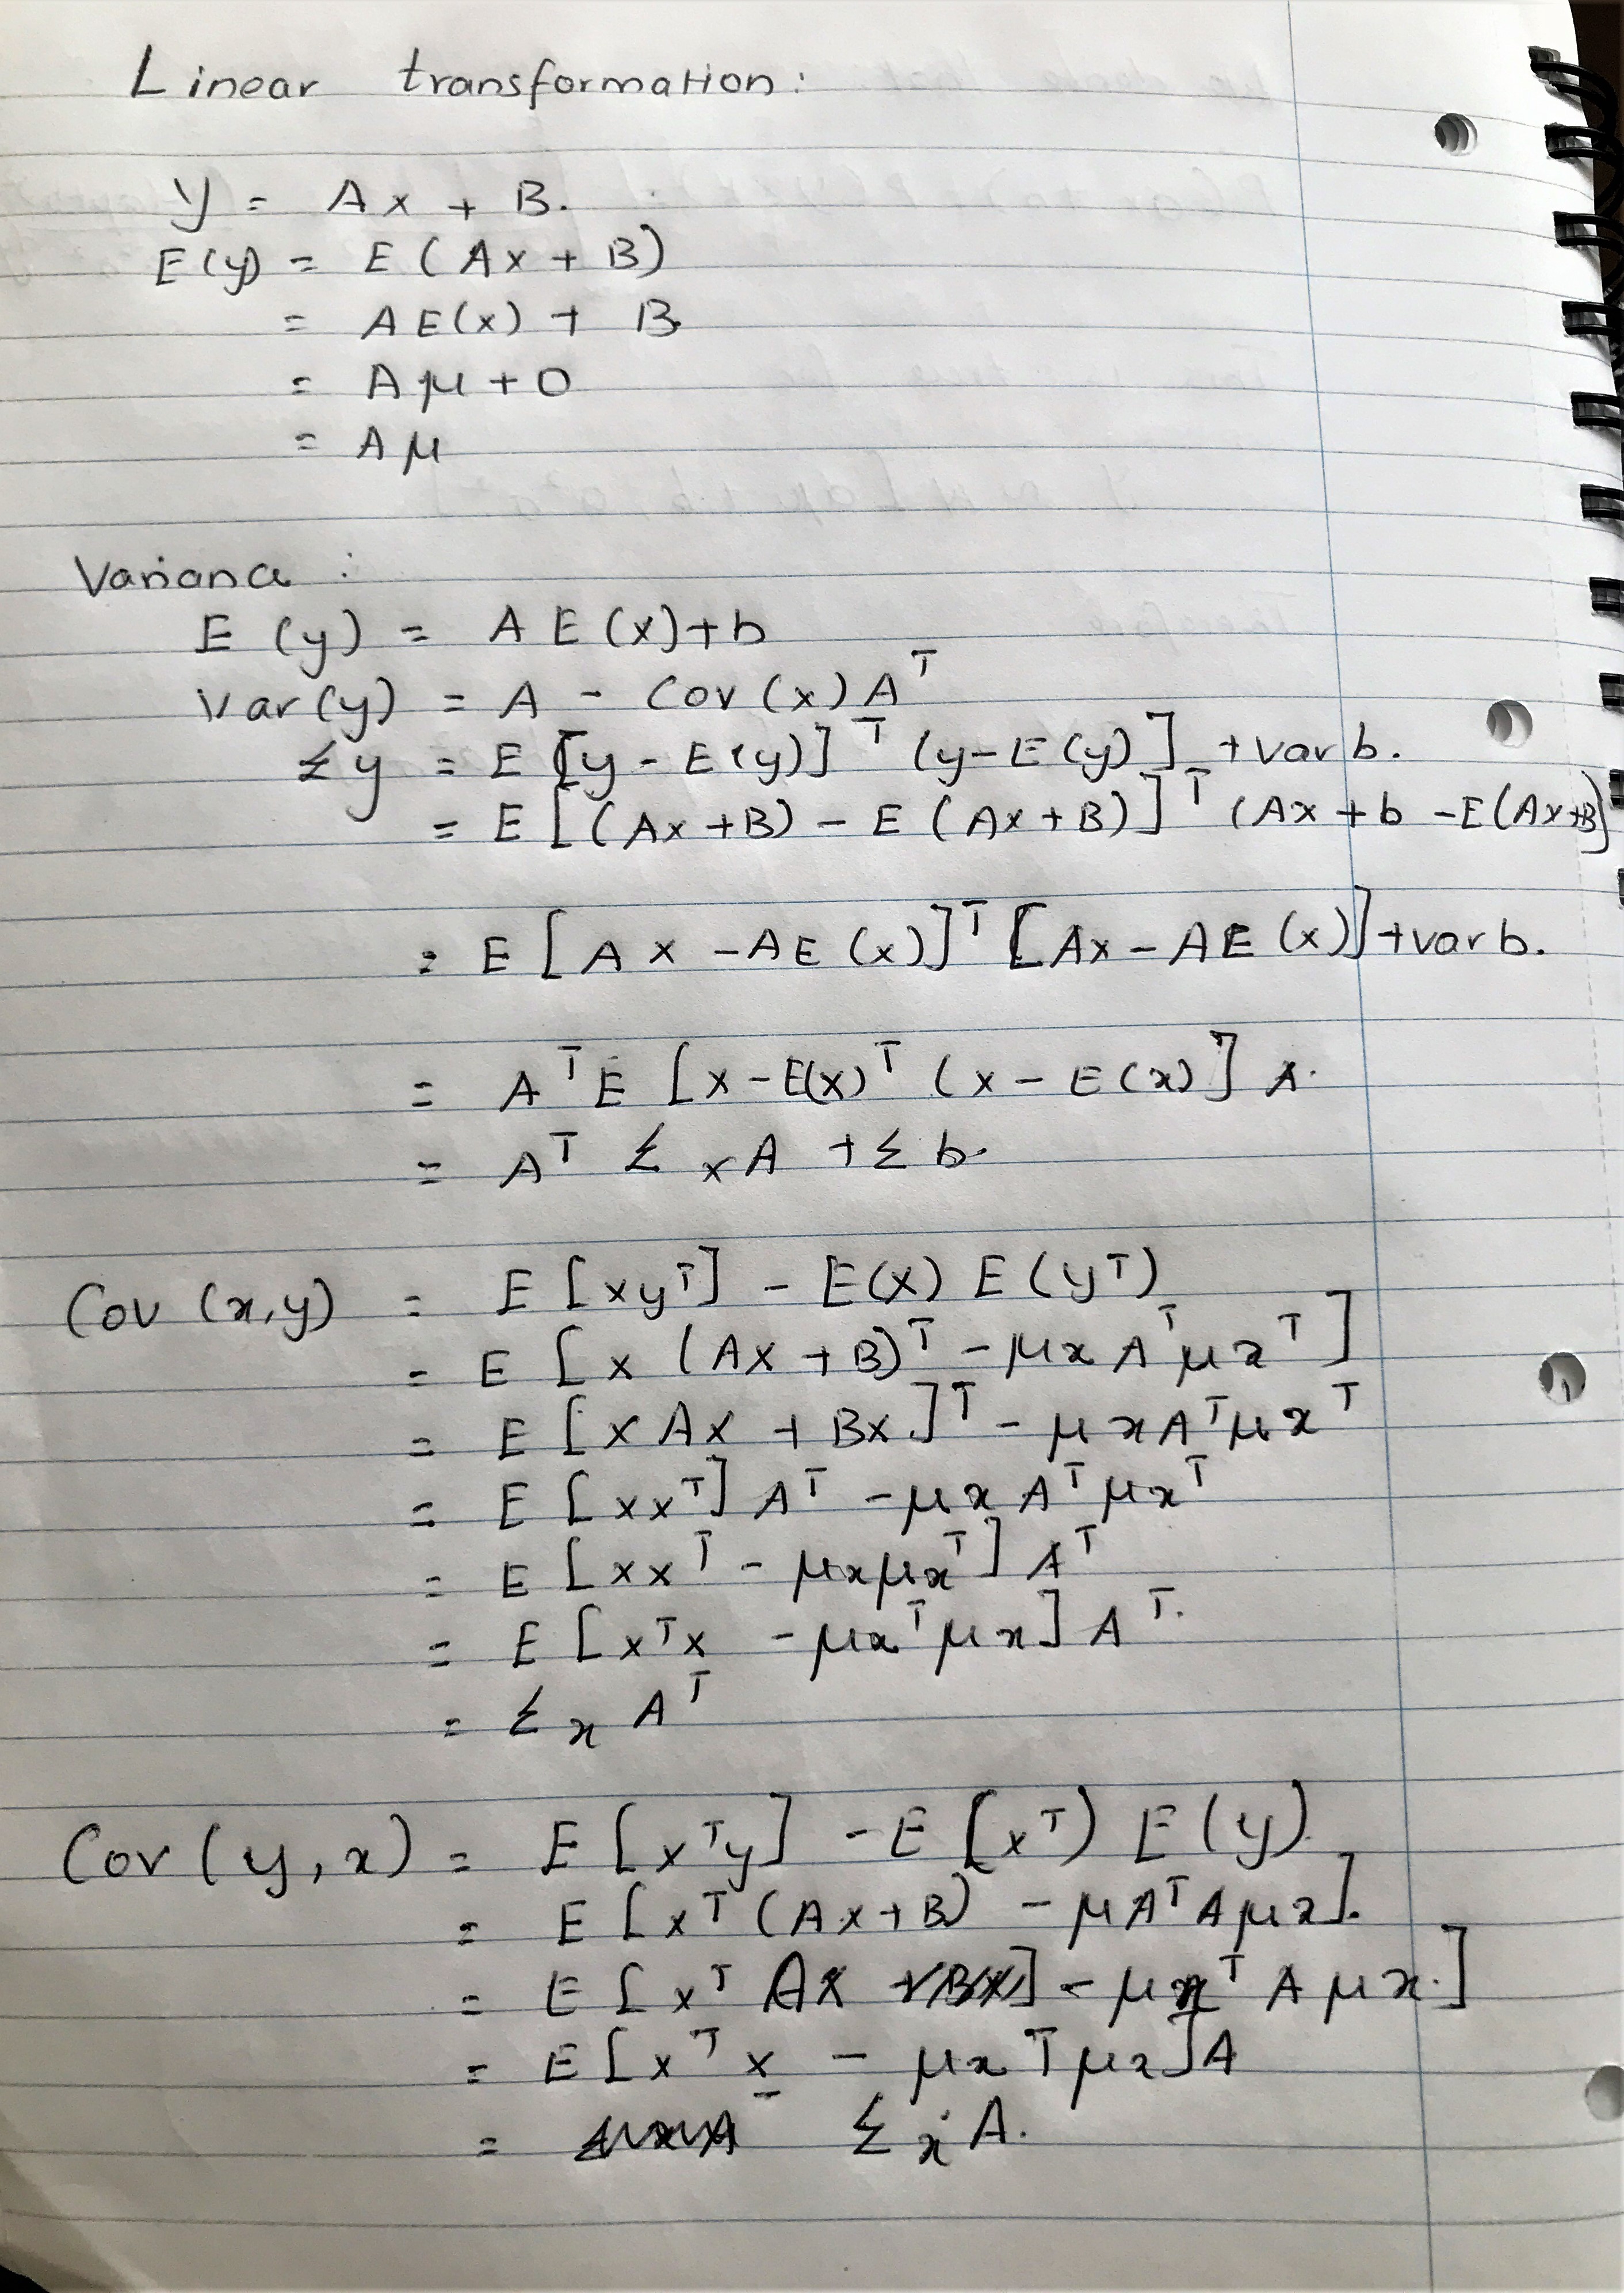 Linear transformation:
y = Ax + B.
E(y) = E(Ax + B)
= AE(x) + B.
= Aμ + 0
= Aμ
Variance :
E (y) = A E (x) + b
Var(y) = A - Cov (x) Aᵀ
Σy = E [y - E(y)]ᵀ (y - E(y)] + var b.
= E [(Ax + B) - E (Ax + B)]ᵀ (Ax + b - E(Ax+B)]
= E [Ax - AE (x)]ᵀ [Ax - AE (x)] + var b.
= Aᵀ E [x - E(x)ᵀ (x - E(x)] A.
= Aᵀ Σ x A + Σ b.
Cov (x,y) = E [xyᵀ] - E(x) E (yᵀ)
= E [x (Ax + B)ᵀ - μx Aᵀ μxᵀ]
= E [x Ax + Bx.]ᵀ - μx Aᵀ μxᵀ
= E [xxᵀ] Aᵀ - μx Aᵀ μxᵀ
= E [xxᵀ - μxμxᵀ] Aᵀ
= E [xᵀx - μxᵀμx] Aᵀ.
= Σx Aᵀ
Cov (y, x) = E [xᵀy] - E [xᵀ) E (y)
= E [xᵀ (Ax + B) - μAᵀ A μx].
= E [xᵀ Ax + Bx] - μxᵀ A μx.]
= E [xᵀ x - μxᵀμx] A
= Σx A.